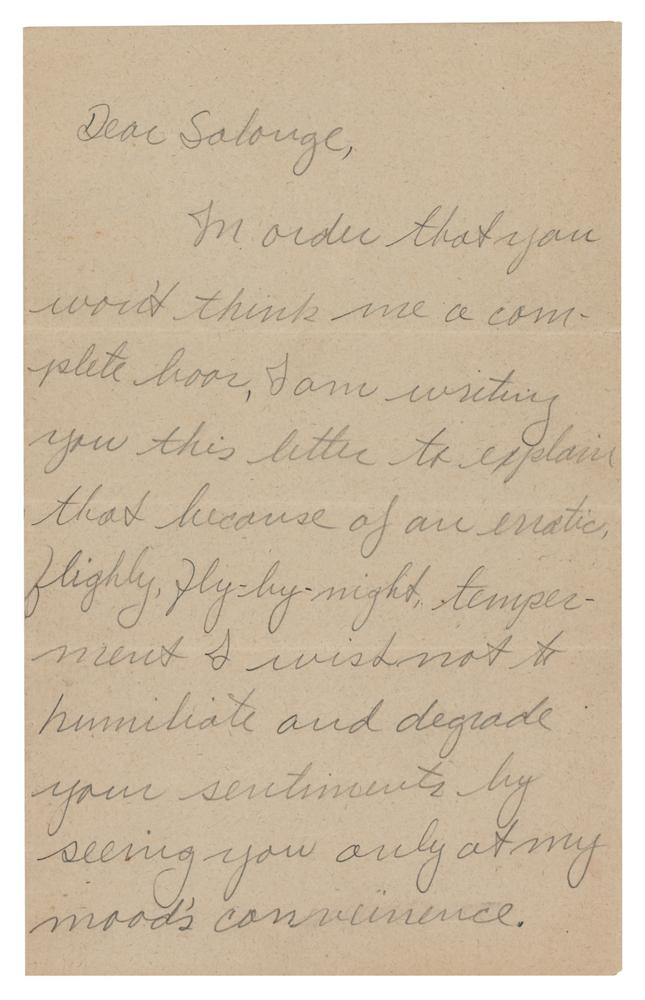 Dear Solonge,
In order that you
won't think me a com-
plete boor, I am writing
you this letter to explain
that because of an erratic,
flighly, fly-by-night, temper-
ment I wish not to
humiliate and degrade
your sentiments by
seeing you only at my
mood's conveinence.